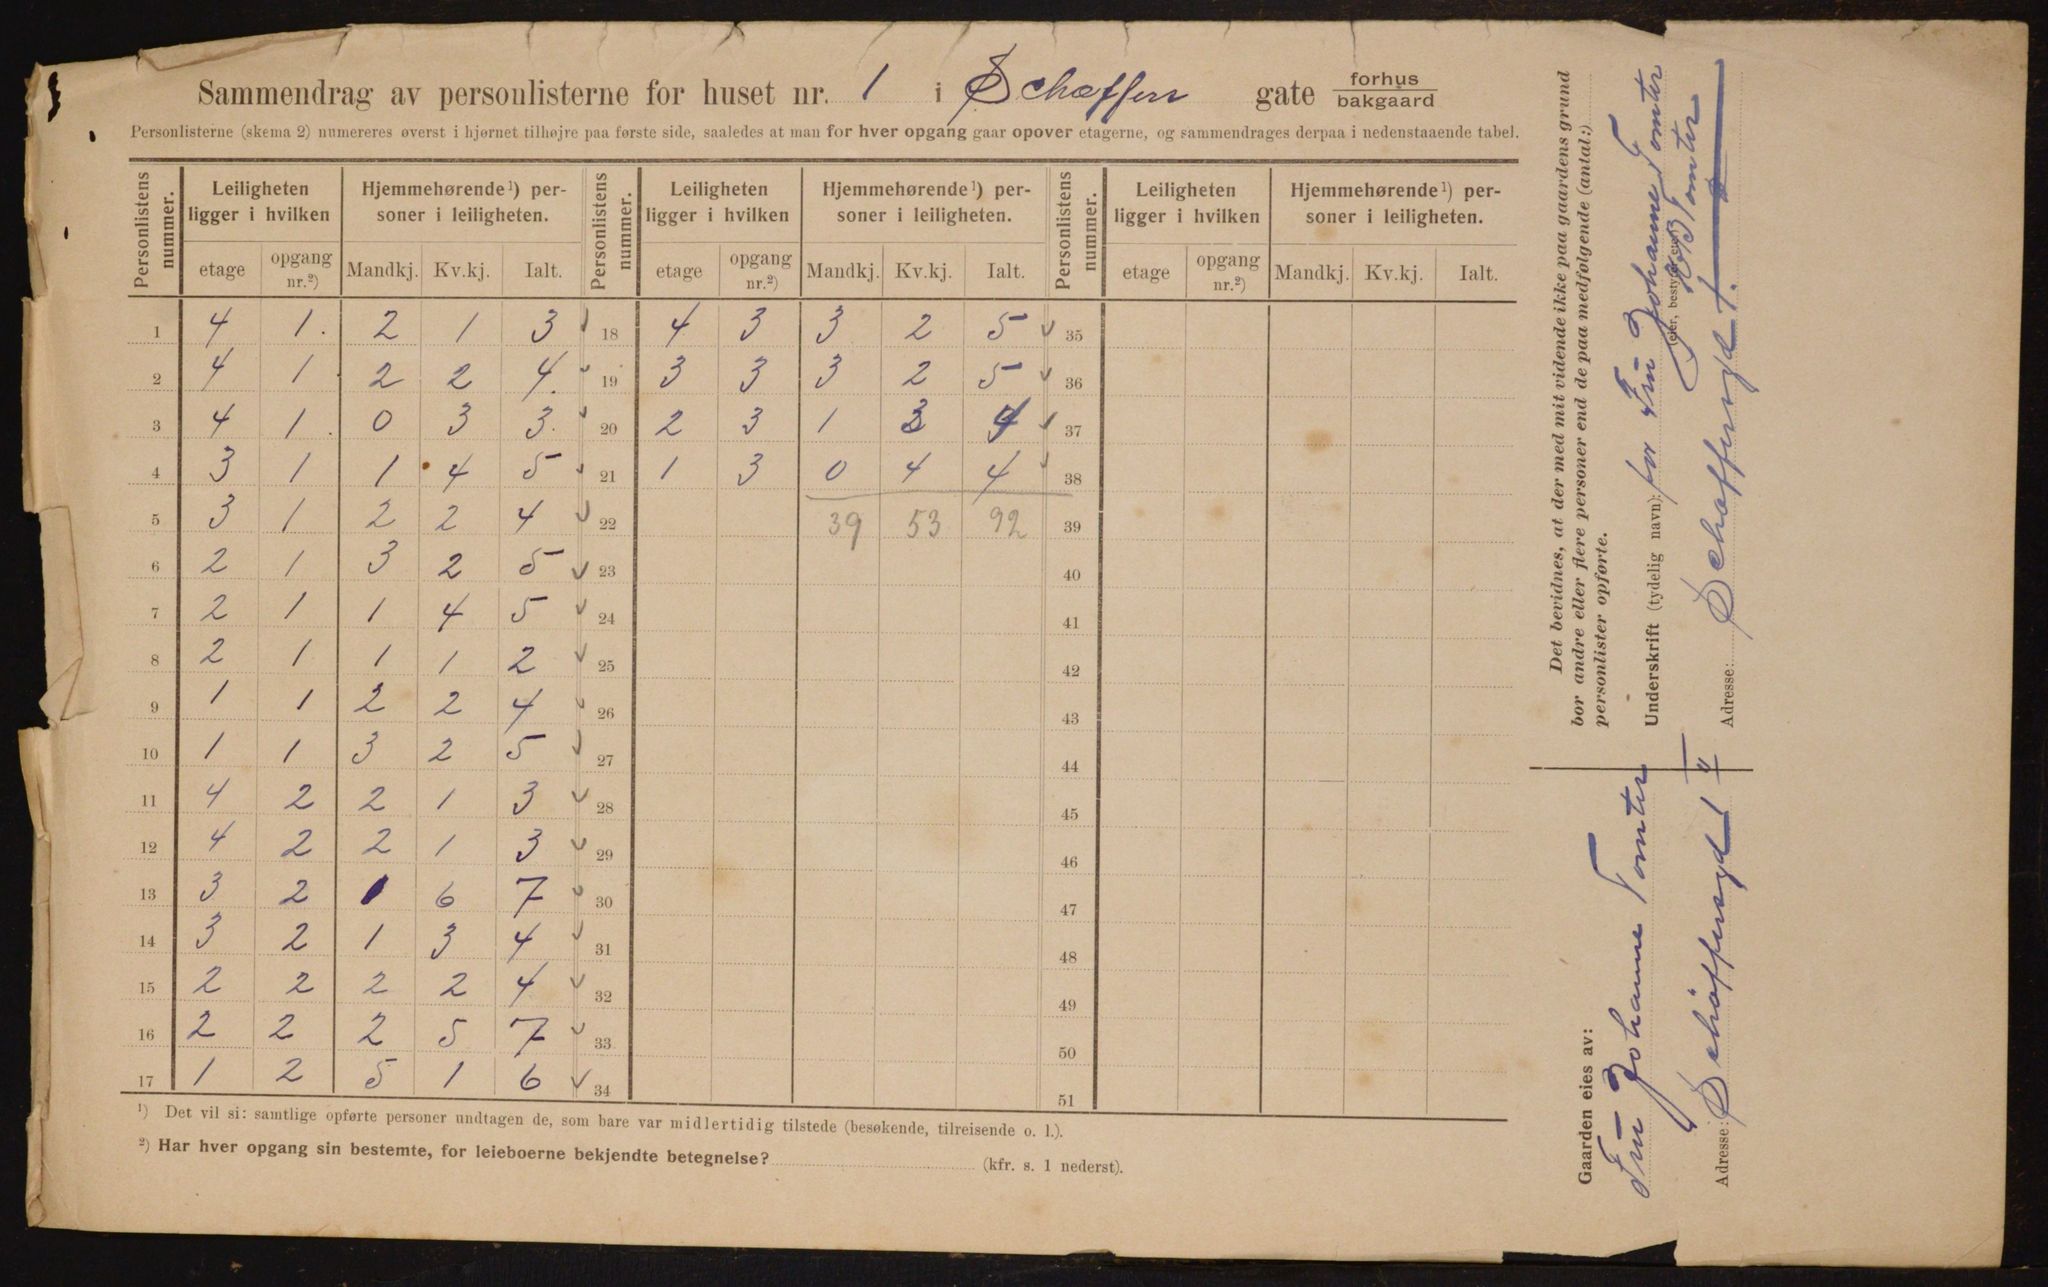 Sammendrag av personlisterne for huset nr. 1 i Schæffers gate forhus / bakgaard
Personlisterne (skema 2) numereres øverst i hjørnet tilhøjre paa første side, saaledes at man for hver opgang gaar opover etagerne, og sammendrages derpaa i nedenstaaende tabel.
Personlistens nummer. Leiligheten ligger i hvilken Hjemmehørende¹) personer i leiligheten. Personlistens nummer. Leiligheten ligger i hvilken Hjemmehørende¹) personer i leiligheten. Personlistens nummer. Leiligheten ligger i hvilken Hjemmehørende¹) personer i leiligheten.
etage opgang nr.²) Mandkj. Kv.kj. Ialt. etage opgang nr.²) Mandkj. Kv.kj. Ialt. etage opgang nr.²) Mandkj. Kv.kj. Ialt.
1 4 1 2 1 3 18 4 3 3 2 5 35
2 4 1 2 2 4 19 3 3 3 2 5 36
3 4 1 0 3 3 20 2 3 1 3 4 37
4 3 1 1 4 5 21 1 3 0 4 4 38
5 3 1 2 2 4 22 39 53 92 39
6 2 1 3 2 5 23 40
7 2 1 1 4 5 24 41
8 2 1 1 1 2 25 42
9 1 1 2 2 4 26 43
10 1 1 3 2 5 27 44
11 4 2 2 1 3 28 45
12 4 2 2 1 3 29 46
13 3 2 1 6 7 30 47
14 3 2 1 3 4 31 48
15 2 2 2 2 4 32 49
16 2 2 2 5 7 33 50
17 1 2 5 1 6 34 51
¹) Det vil si: samtlige opførte personer undtagen de, som bare var midlertidig tilstede (besøkende, tilreisende o. l.).
²) Har hver opgang sin bestemte, for leieboerne bekjendte betegnelse? (kfr. s. 1 nederst).
Det bevidnes, at der med mit vidende ikke paa gaardens grund
bor andre eller flere personer end de paa medfølgende (antal:)
personlister opførte.
Underskrift (tydelig navn): for Fru Johanne Tomter
Tomter
Adresse: Schæffersgd 1.
Gaarden eies av:
Fru Johanne Tomter
Adresse: Schöffersgd 1